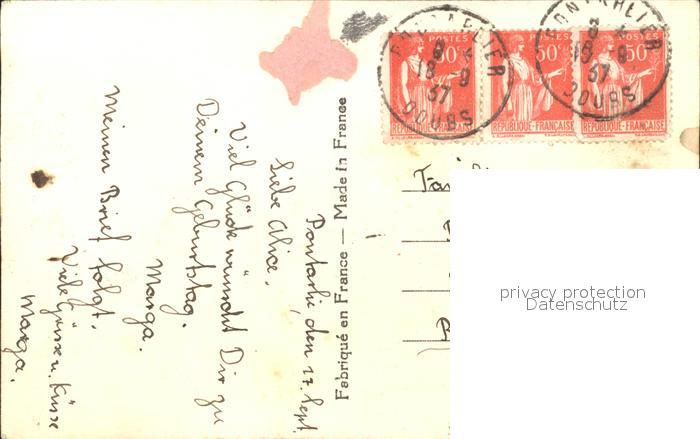 Pontarlier, den 17. Sept.
Liebe Alice.
Viel Glück wünscht Dir zu
Deinem Geburtstag.
Marga.
Meinen Brief folgt.
Viele Grüsse u. Küsse
Marga.
Fabriqué en France — Made in France
PONTARLIER
8
18 9
37
DOUBS
PONTARLIER
8
18 9
37
DOUBS
POSTES
50c
RÉPUBLIQUE FRANÇAISE
50c
RÉPUBLIQUE-FRANÇAISE
POSTES
50c
RÉPUBLIQUE-FRANÇAISE
privacy protection
Datenschutz